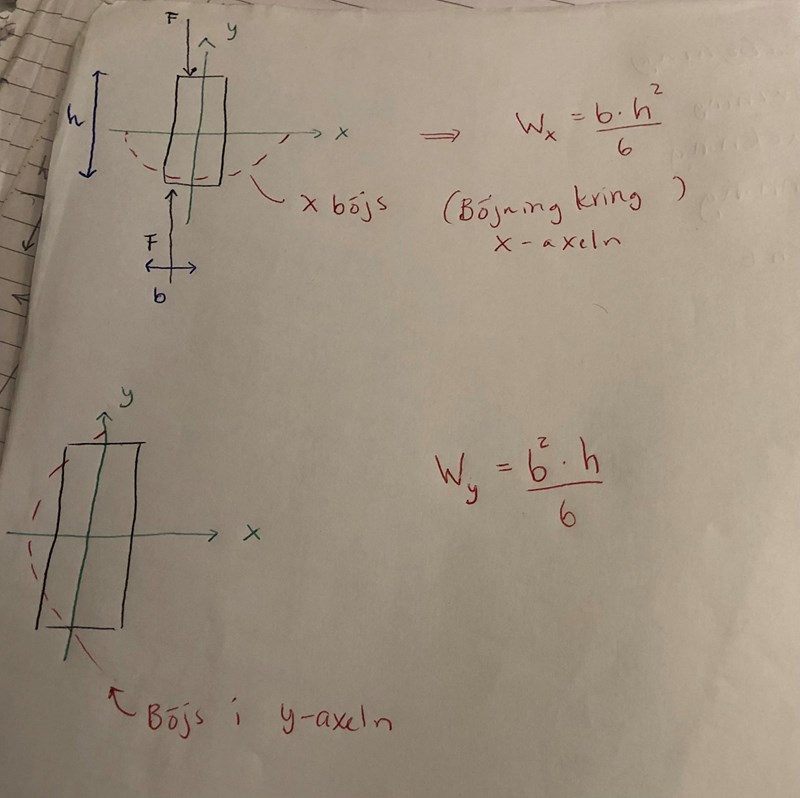 F
y
h
x
⇒ Wₓ = b·h²/6
x böjs (Böjning kring)
x-axeln
F
b
y
W_y = b²·h/6
x
Böjs i y-axeln